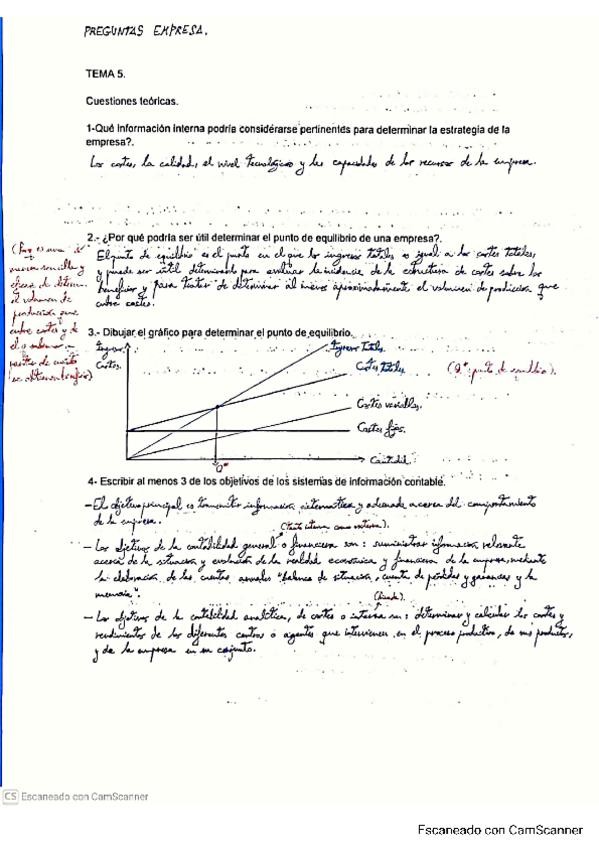 PREGUNTAS EMPRESA.
TEMA 5.
Cuestiones teóricas.
1-Qué información interna podría considerarse pertinentes para determinar la estrategia de la
empresa?.
Los costes, la calidad, el nivel tecnológico y las capacidades de los recursos de la empresa.
2.- ¿Por qué podría ser útil determinar el punto de equilibrio de una empresa?.
El punto de equilibrio es el punto en el que los ingresos totales es igual a los costes totales,
y puede ser útil determinarlo para evaluar la incidencia de la estructura de costes sobre los
beneficios y para tratar de determinar al menos aproximadamente el volumen de producción que
cubre costes.
(Pues es una
manera sencilla y
eficaz de determ.
el volumen de
producción que
cubre costes y de
partir de cuánto
se obtienen beneficios)
3.- Dibujar el gráfico para determinar el punto de equilibrio.
Ingresos
Costes.
Ingresos Totales.
Costes Totales.
(Q*: punto de equilibrio).
Costes variables.
Costes fijos.
Cantidad.
Q*
4- Escribir al menos 3 de los objetivos de los sistemas de información contable.
- El objetivo principal es transmitir información sistemática y adecuada acerca del comportamiento
de la empresa.
(Tanto interna como externa).
- Los objetivos de la contabilidad general o financiera son: suministrar información relevante
acerca de la situación y evolución de la realidad económica y financiera de la empresa, mediante
la elaboración de las cuentas anuales "balance de situación, cuenta de pérdidas y ganancias y la
memoria".
- Los objetivos de la contabilidad analítica, de costes o interna son: determinar y calcular los costes y
rendimientos de los diferentes centros o agentes que intervienen en el proceso productivo, de sus productos,
y de la empresa en su conjunto.
CS Escaneado con CamScanner
Escaneado con CamScanner